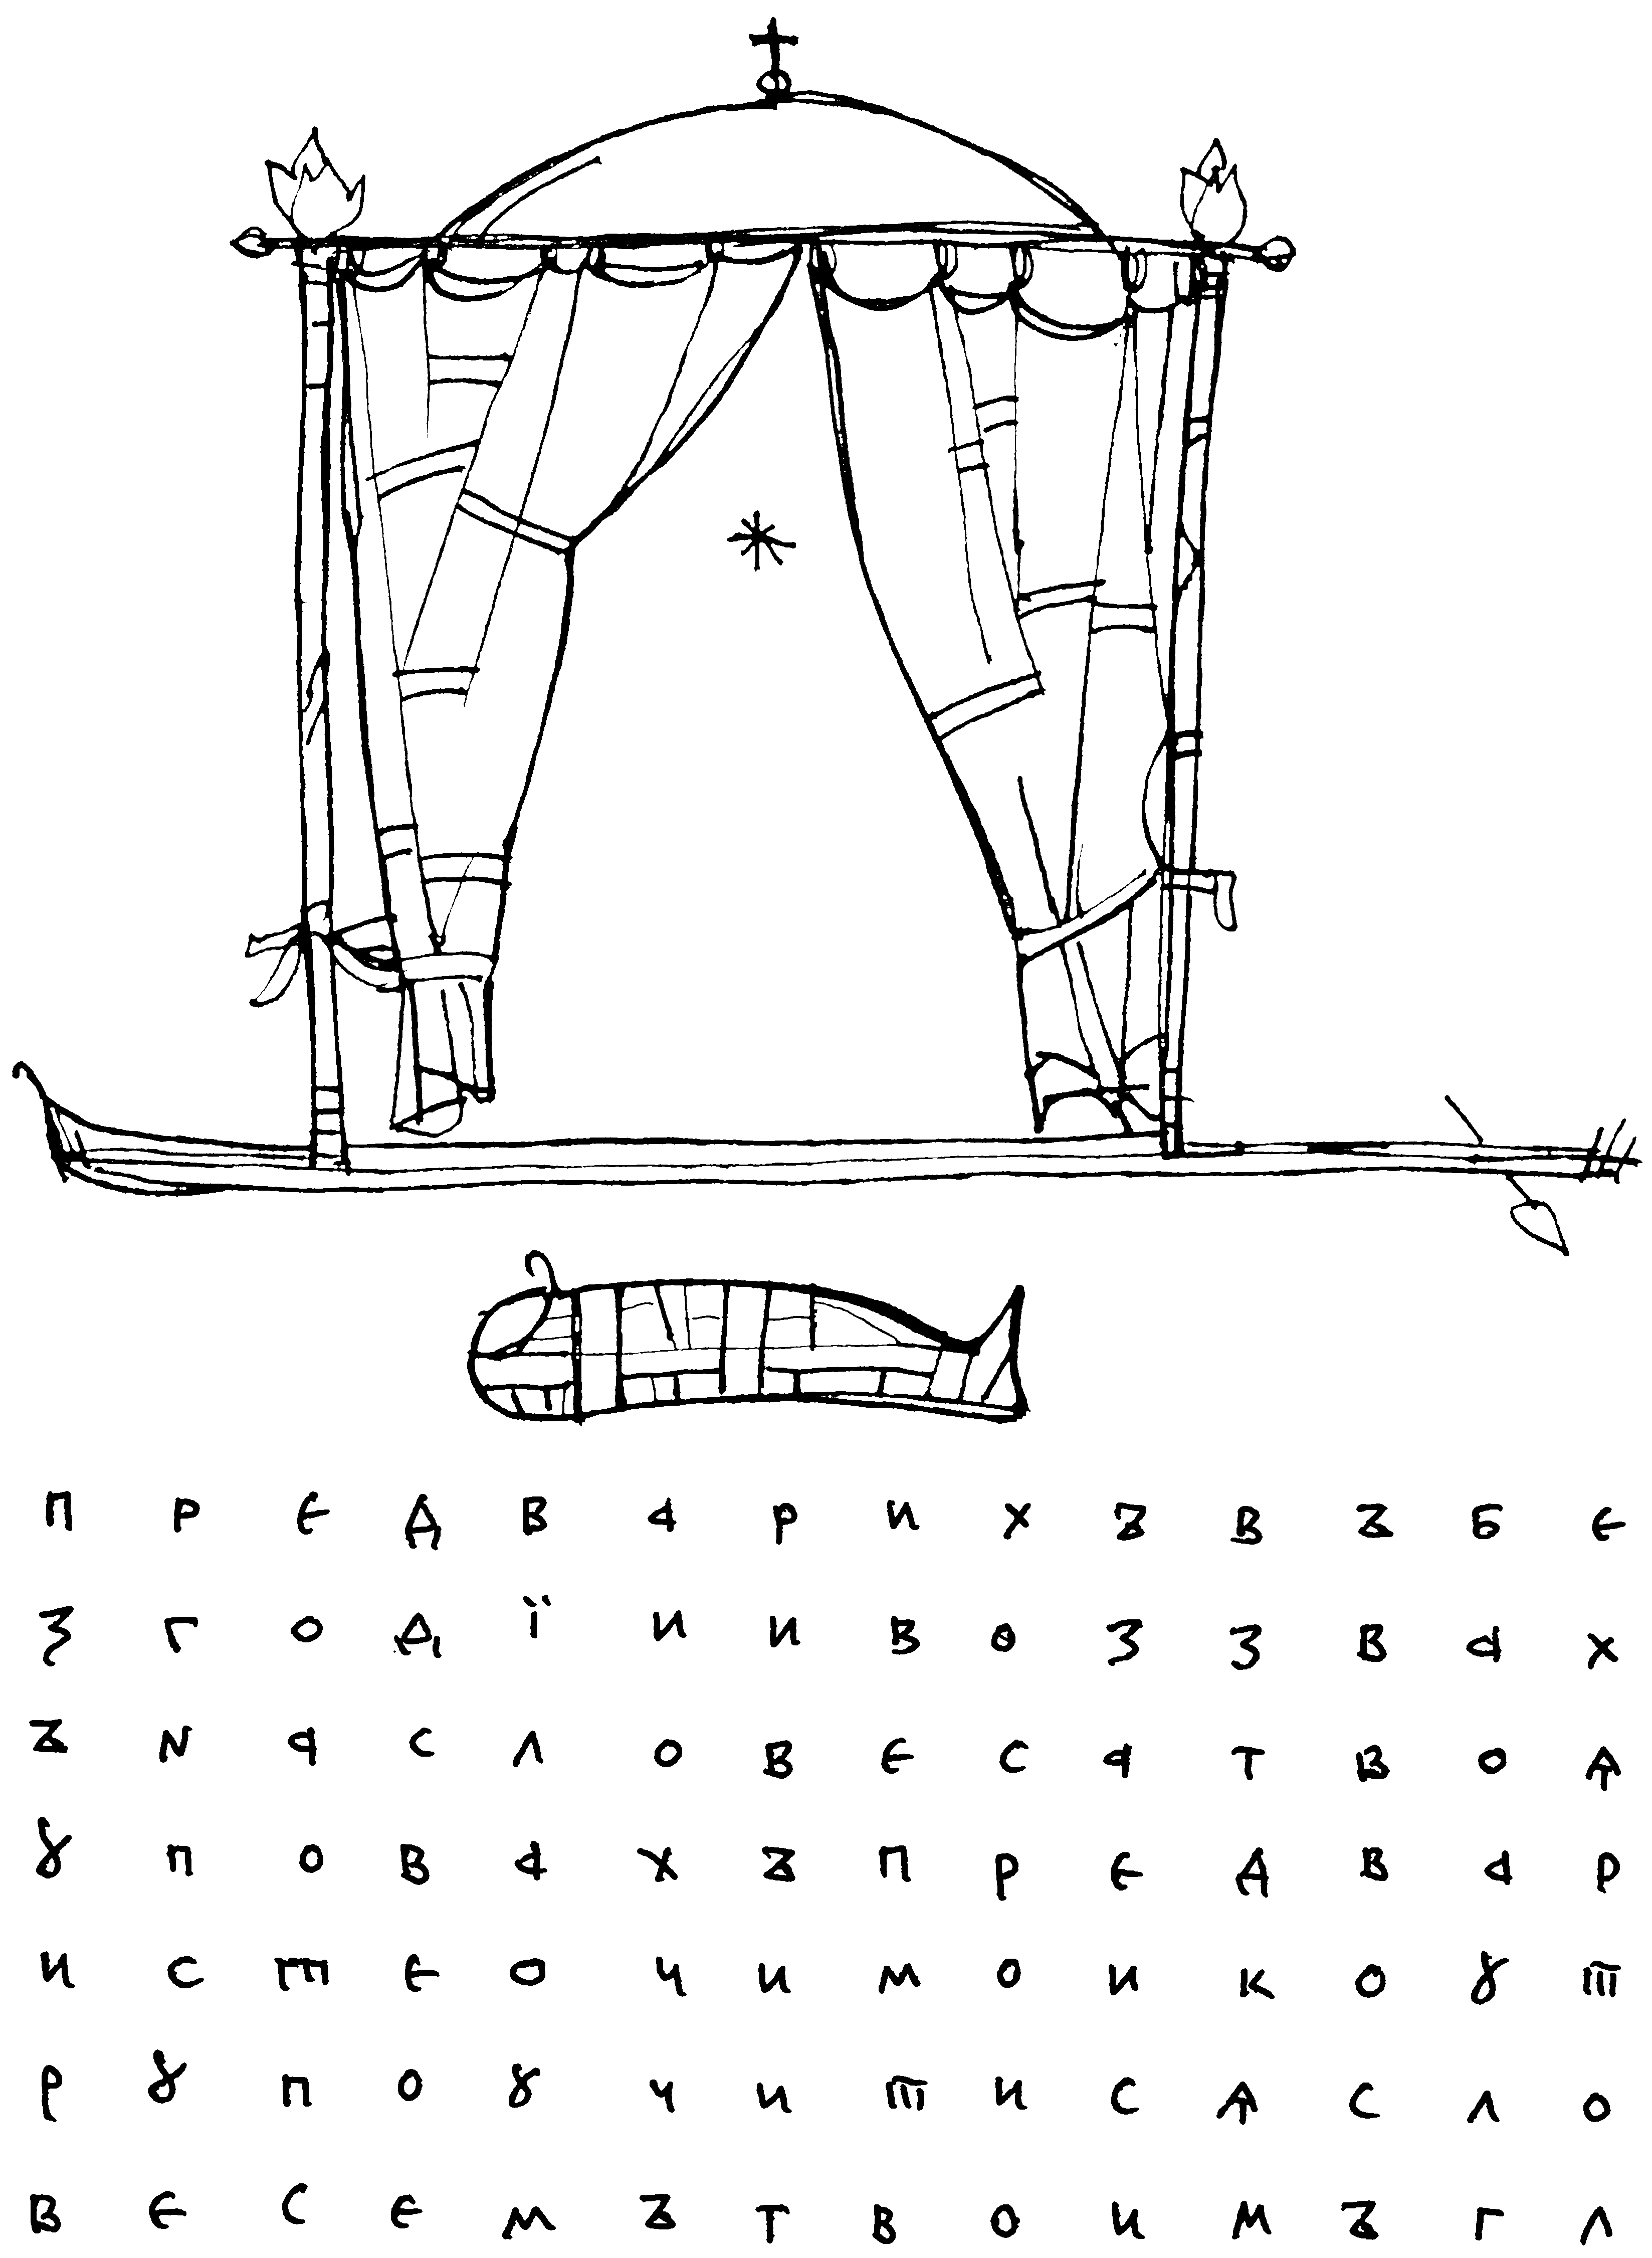 П Р Е Д В А Р И Х Ъ В Ъ Б Е
З Г О Д Ї И И В О З З В А Х
Ъ N А С Л О В Е С А Т В О Ѧ
Ꙋ П О В А Х Ъ П Р Е Д В А Р
И С Т Е О Ч И М О И К О Ꙋ Т
Р Ꙋ П О Ꙋ Ч И Т И С Ѧ С Л О
В Е С Е М Ъ Т В О И М Ъ Г Л